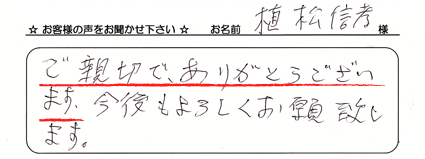 ☆ お客様の声をお聞かせ下さい ☆ お名前 植松信孝 様
ご親切で、ありがとうござい
ます、今後もよろしくお願致し
ます。